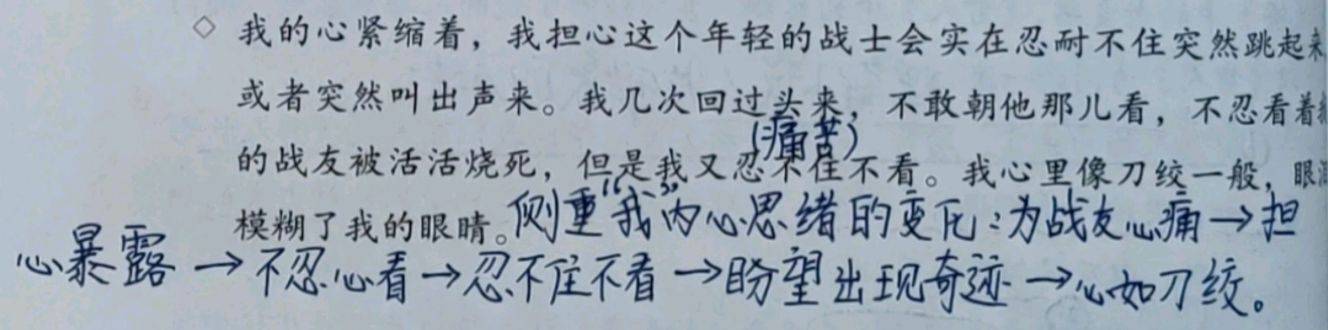 ◇ 我的心紧缩着，我担心这个年轻的战士会实在忍耐不住突然跳起来
或者突然叫出声来。我几次回过头来，不敢朝他那儿看，不忍看着
(痛苦)
的战友被活活烧死，但是我又忍不住不看。我心里像刀绞一般，眼泪
模糊了我的眼睛。侧重“我”内心思绪的变化：为战友心痛→担
心暴露→不忍心看→忍不住不看→盼望出现奇迹→心如刀绞。